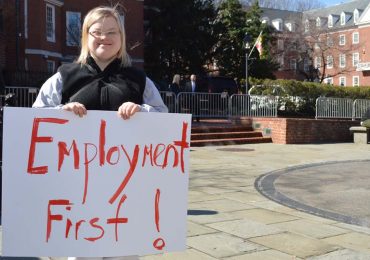 Employment
First !